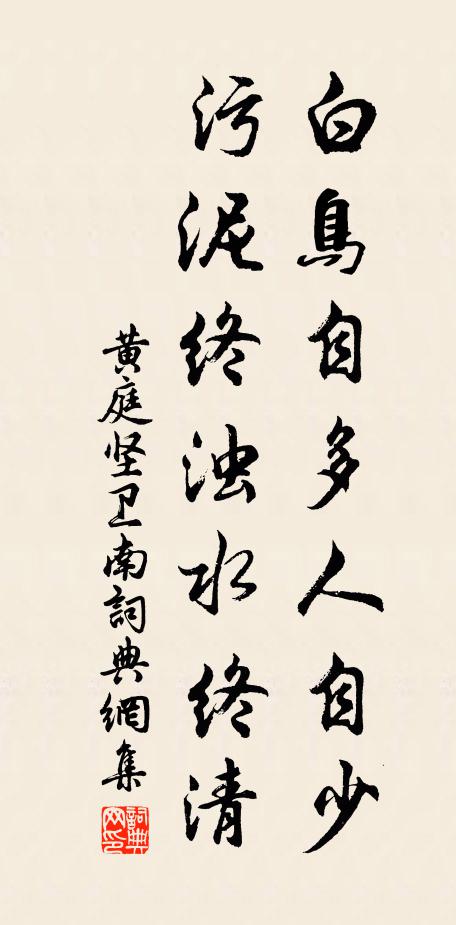 白鳥自多人自少
污泥终浊水终清
黄庭坚卫南詞典網集
詞典网印